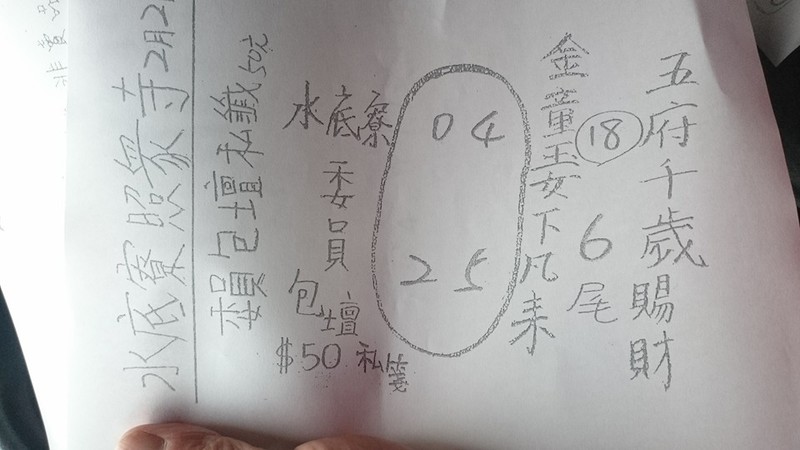 五府千歲賜財
18
6尾
金童玉女下凡来
04
25
水底寮
委員
包壇
$50 私箋
賴包壇私籤 50元
水底寮照眾寺 2月2